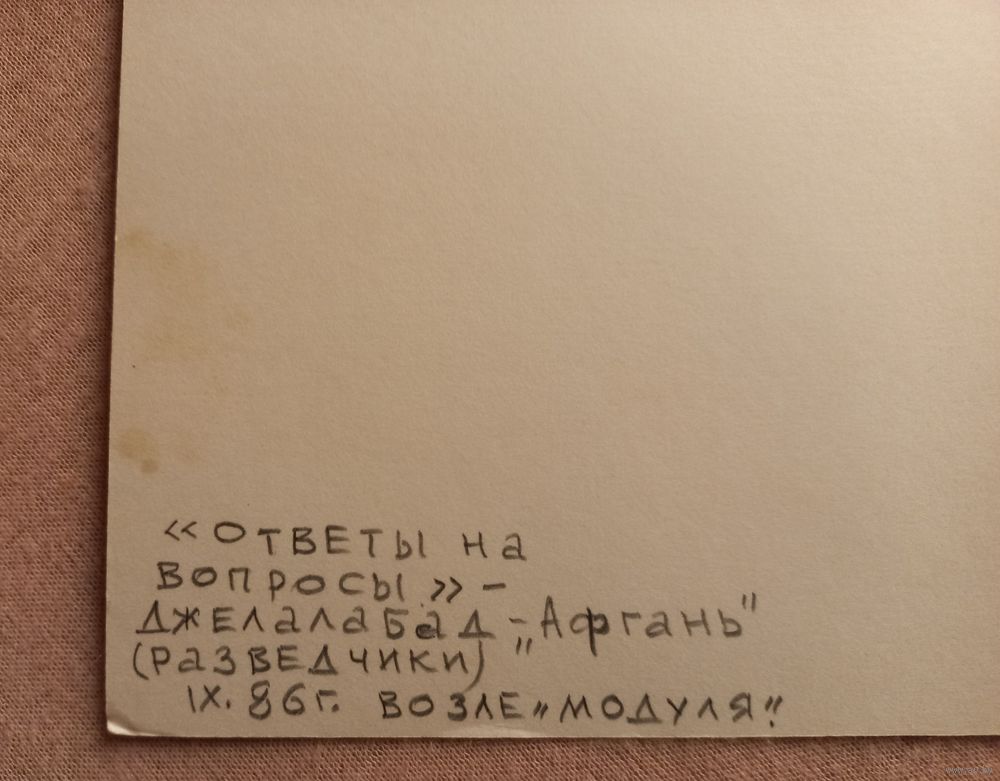 «Ответы на
вопросы» –
Джелалабад – „Афгань"
(разведчики)
IX. 86 г. возле „модуля".